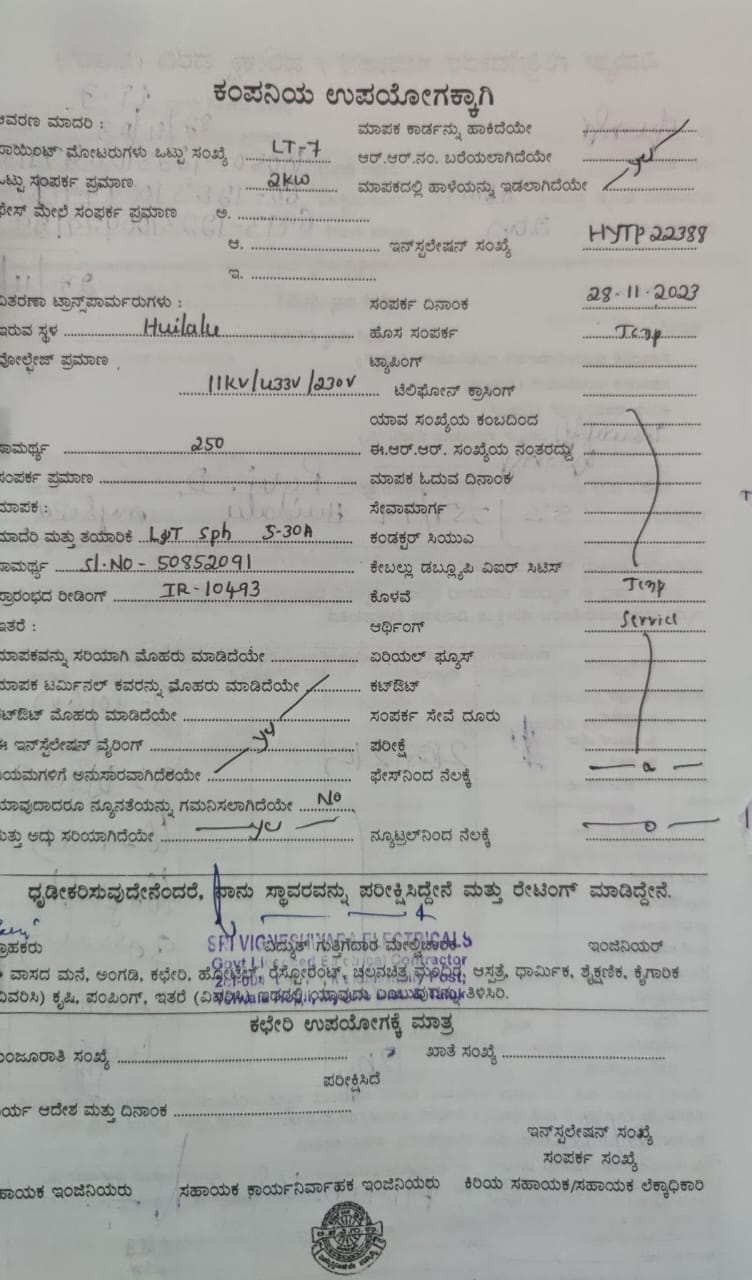 ಕಂಪನಿಯ ಉಪಯೋಗಕ್ಕಾಗಿ
ಆವರಣ ಮಾದರಿ : ಮಾಪಕ ಕಾರ್ಡನ್ನು ಹಾಕಿದೆಯೇ
ಪಾಯಿಂಟ್ ಮೋಟರುಗಳು ಒಟ್ಟು ಸಂಖ್ಯೆ LT-7 ಆರ್.ಆರ್.ನಂ. ಬರೆಯಲಾಗಿದೆಯೇ yes
ಒಟ್ಟು ಸಂಪರ್ಕ ಪ್ರಮಾಣ 2KW ಮಾಪಕದಲ್ಲಿ ಹಾಳೆಯನ್ನು ಇಡಲಾಗಿದೆಯೇ
ಫೇಸ್ ಮೇಲೆ ಸಂಪರ್ಕ ಪ್ರಮಾಣ ಅ.
ಆ. ಇನ್‌ಸ್ಟಲೇಷನ್ ಸಂಖ್ಯೆ HYTP 22388
ಇ.
ವಿತರಣಾ ಟ್ರಾನ್ಸ್‌ಪಾರ್ಮರುಗಳು : ಸಂಪರ್ಕ ದಿನಾಂಕ 28-11-2023
ಇರುವ ಸ್ಥಳ Huilalu ಹೊಸ ಸಂಪರ್ಕ Temp
ವೋಲ್ಟೇಜ್ ಪ್ರಮಾಣ ಟ್ಯಾಪಿಂಗ್
11KV/433V/230V ಟೆಲಿಫೋನ್ ಕ್ರಾಸಿಂಗ್
ಯಾವ ಸಂಖ್ಯೆಯ ಕಂಬದಿಂದ
ಸಾಮರ್ಥ್ಯ 250 ಈ.ಆರ್.ಆರ್. ಸಂಖ್ಯೆಯ ನಂತರದ್ದು
ಸಂಪರ್ಕ ಪ್ರಮಾಣ ಮಾಪಕ ಓದುವ ದಿನಾಂಕ
ಮಾಪಕ : ಸೇವಾಮಾರ್ಗ
ಮಾದರಿ ಮತ್ತು ತಯಾರಿಕೆ L&T Sph 5-30A ಕಂಡಕ್ಟರ್ ಸಿಯುಎ
ಸಾಮರ್ಥ್ಯ Sl.No - 50852091 ಕೇಬಲ್ಲು ಡಬ್ಲ್ಯೂಪಿ ವಿಐರ್ ಸಿಟಿಸ್
ಪ್ರಾರಂಭದ ರೀಡಿಂಗ್ IR-10493 ಕೊಳವೆ Temp
ಇತರೆ : ಆರ್ಥಿಂಗ್ Service
ಮಾಪಕವನ್ನು ಸರಿಯಾಗಿ ಮೊಹರು ಮಾಡಿದೆಯೇ ಏರಿಯಲ್ ಫ್ಯೂಸ್
ಮಾಪಕ ಟರ್ಮಿನಲ್ ಕವರನ್ನು ಮೊಹರು ಮಾಡಿದೆಯೇ ಕಟ್‌ಔಟ್
ಕಟ್‌ಔಟ್ ಮೊಹರು ಮಾಡಿದೆಯೇ yes ಸಂಪರ್ಕ ಸೇವೆ ದೂರು
ಈ ಇನ್‌ಸ್ಟಲೇಷನ್ ವೈರಿಂಗ್ ಪರೀಕ್ಷೆ
ನಿಯಮಗಳಿಗೆ ಅನುಸಾರವಾಗಿದೆಯೇ ಫೇಸ್‌ನಿಂದ ನೆಲಕ್ಕೆ
ಯಾವುದಾದರೂ ನ್ಯೂನತೆಯನ್ನು ಗಮನಿಸಲಾಗಿದೆಯೇ No
ಮತ್ತು ಅದು ಸರಿಯಾಗಿದೆಯೇ yes ನ್ಯೂಟ್ರಲ್‌ನಿಂದ ನೆಲಕ್ಕೆ 0
ಧೃಡೀಕರಿಸುವುದೇನೆಂದರೆ, ನಾನು ಸ್ಥಾವರವನ್ನು ಪರೀಕ್ಷಿಸಿದ್ದೇನೆ ಮತ್ತು ರೇಟಿಂಗ್ ಮಾಡಿದ್ದೇನೆ.
SRI VIGNESHWARA ELECTRICALS
Govt Licensed Electrical Contractor
ಗ್ರಾಹಕರು ವಿದ್ಯುತ್ ಗುತ್ತಿಗೆದಾರ ಮೇಲ್ವಿಚಾರಕ ಇಂಜಿನಿಯರ್
ವಾಸದ ಮನೆ, ಅಂಗಡಿ, ಕಛೇರಿ, ಹೋಟೆಲ್, ರೆಸ್ಟೋರೆಂಟ್, ಚಲನಚಿತ್ರ ಮಂದಿರ, ಆಸ್ಪತ್ರೆ, ಧಾರ್ಮಿಕ, ಶೈಕ್ಷಣಿಕ, ಕೈಗಾರಿಕ
(ವಿವರಿಸಿ) ಕೃಷಿ, ಪಂಪಿಂಗ್, ಇತರೆ (ವಿವರಿಸಿ) ಇದರಲ್ಲಿ ಯಾವುದು ಎಂಬುವುದನ್ನು ತಿಳಿಸಿರಿ.
ಕಛೇರಿ ಉಪಯೋಗಕ್ಕೆ ಮಾತ್ರ
ಮಂಜೂರಾತಿ ಸಂಖ್ಯೆ ಖಾತೆ ಸಂಖ್ಯೆ
ಪರೀಕ್ಷಿಸಿದೆ
ಕಾರ್ಯ ಆದೇಶ ಮತ್ತು ದಿನಾಂಕ
ಇನ್‌ಸ್ಟಲೇಷನ್ ಸಂಖ್ಯೆ
ಸಂಪರ್ಕ ಸಂಖ್ಯೆ
ಸಹಾಯಕ ಇಂಜಿನಿಯರು ಸಹಾಯಕ ಕಾರ್ಯನಿರ್ವಾಹಕ ಇಂಜಿನಿಯರು ಕಿರಿಯ ಸಹಾಯಕ/ಸಹಾಯಕ ಲೆಕ್ಕಾಧಿಕಾರಿ